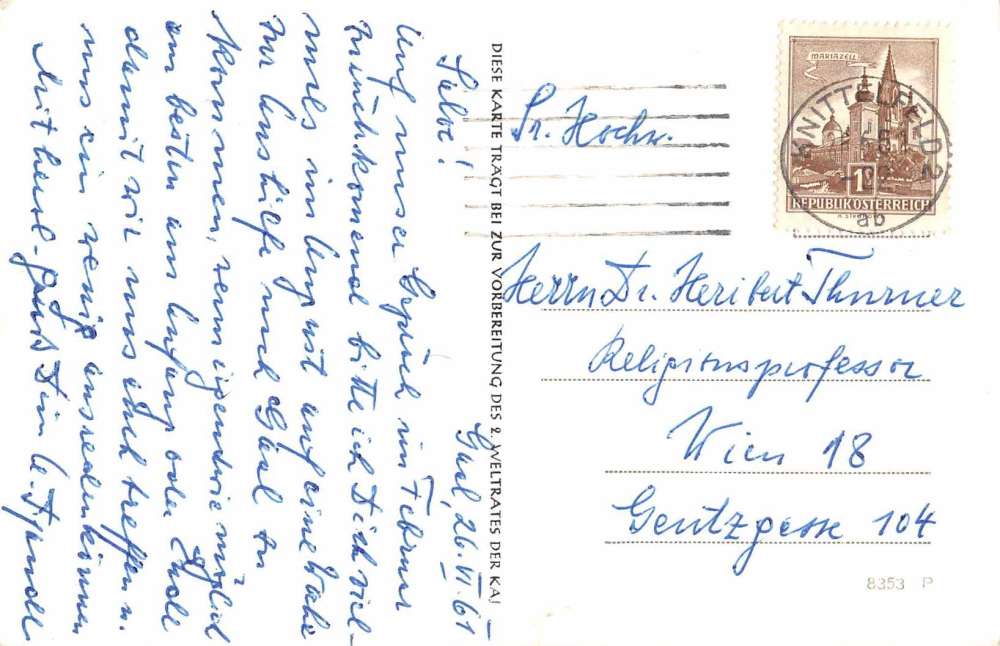 Gaal, 26.VI.61
Lieber!
Auf unser Gespräch im Februar
zurückkommend bitte ich Dich viel-
mals im August auf eine Woche
zur Aushilfe nach Gaal zu
kommen, wenn irgendwie möglich
am besten am Anfang oder Ende
damit wir uns auch treffen u.
uns ein wenig ausreden können
Mit herzl. Gruß Dein
DIESE KARTE TRÄGT BEI ZUR VORBEREITUNG DES 2. WELTRATES DER KAJ
MARIAZELL
KNITTELFELD 2
ab
1S
REPUBLIK ÖSTERREICH
Sr. Hochw.
Herrn Dr. Heribert Thurner
Religionsprofessor
Wien 18
Gentzgasse 104
8353 P